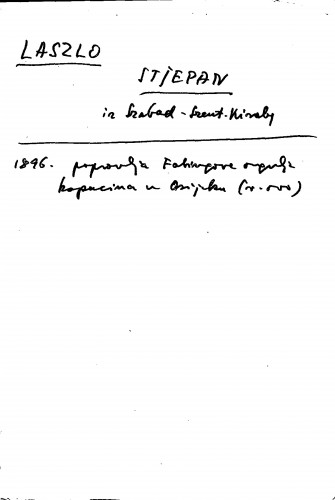 LASZLO
STJEPAN
iz Szabad-Szent-Kiraly
1896. popravlja Fabingove orgulje
kapucina u Osijeku (v. ovo)